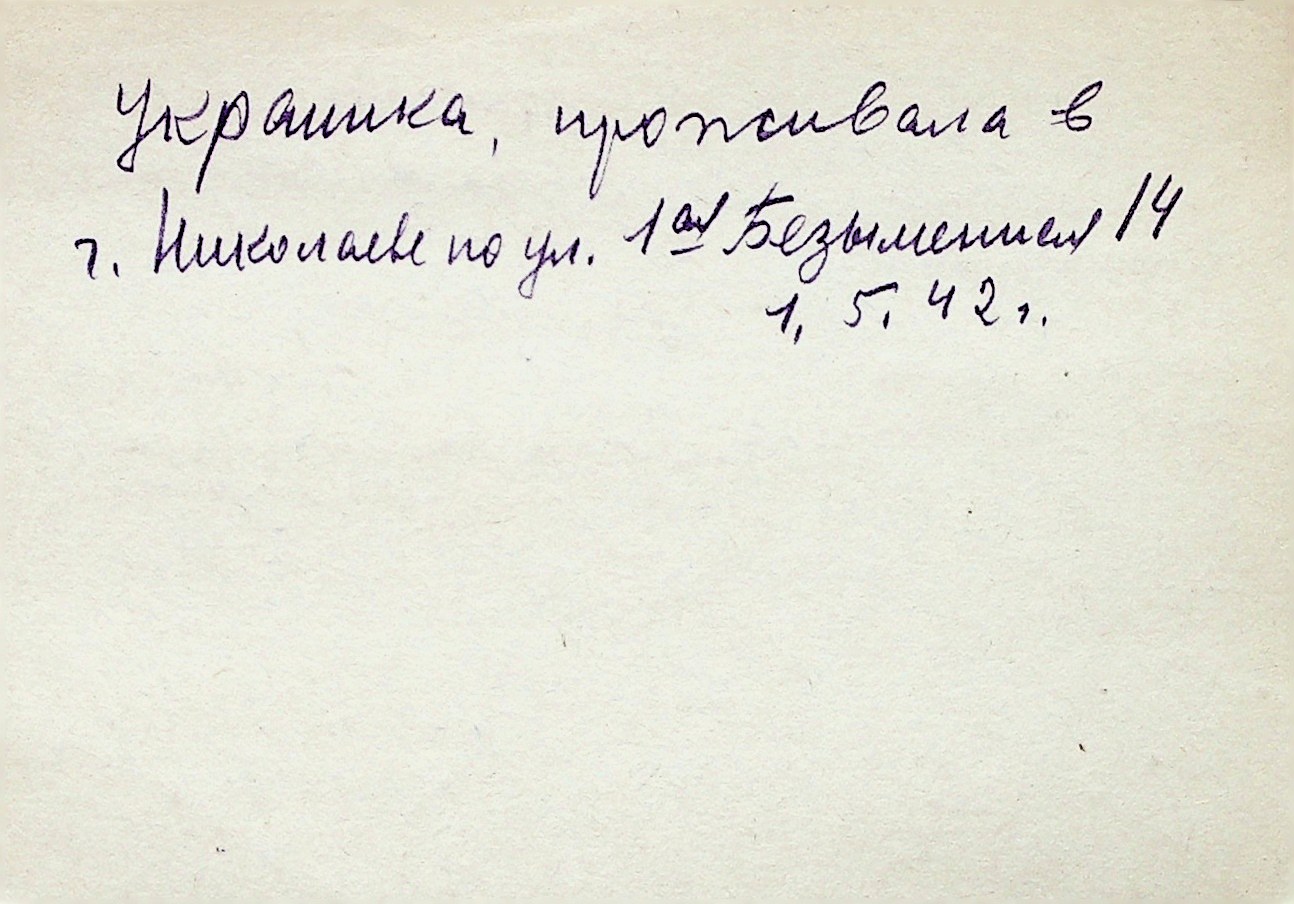 Украинка, проживала в
г. Николаеве по ул. 1ая Безыменная 14
1. 5. 42 г.